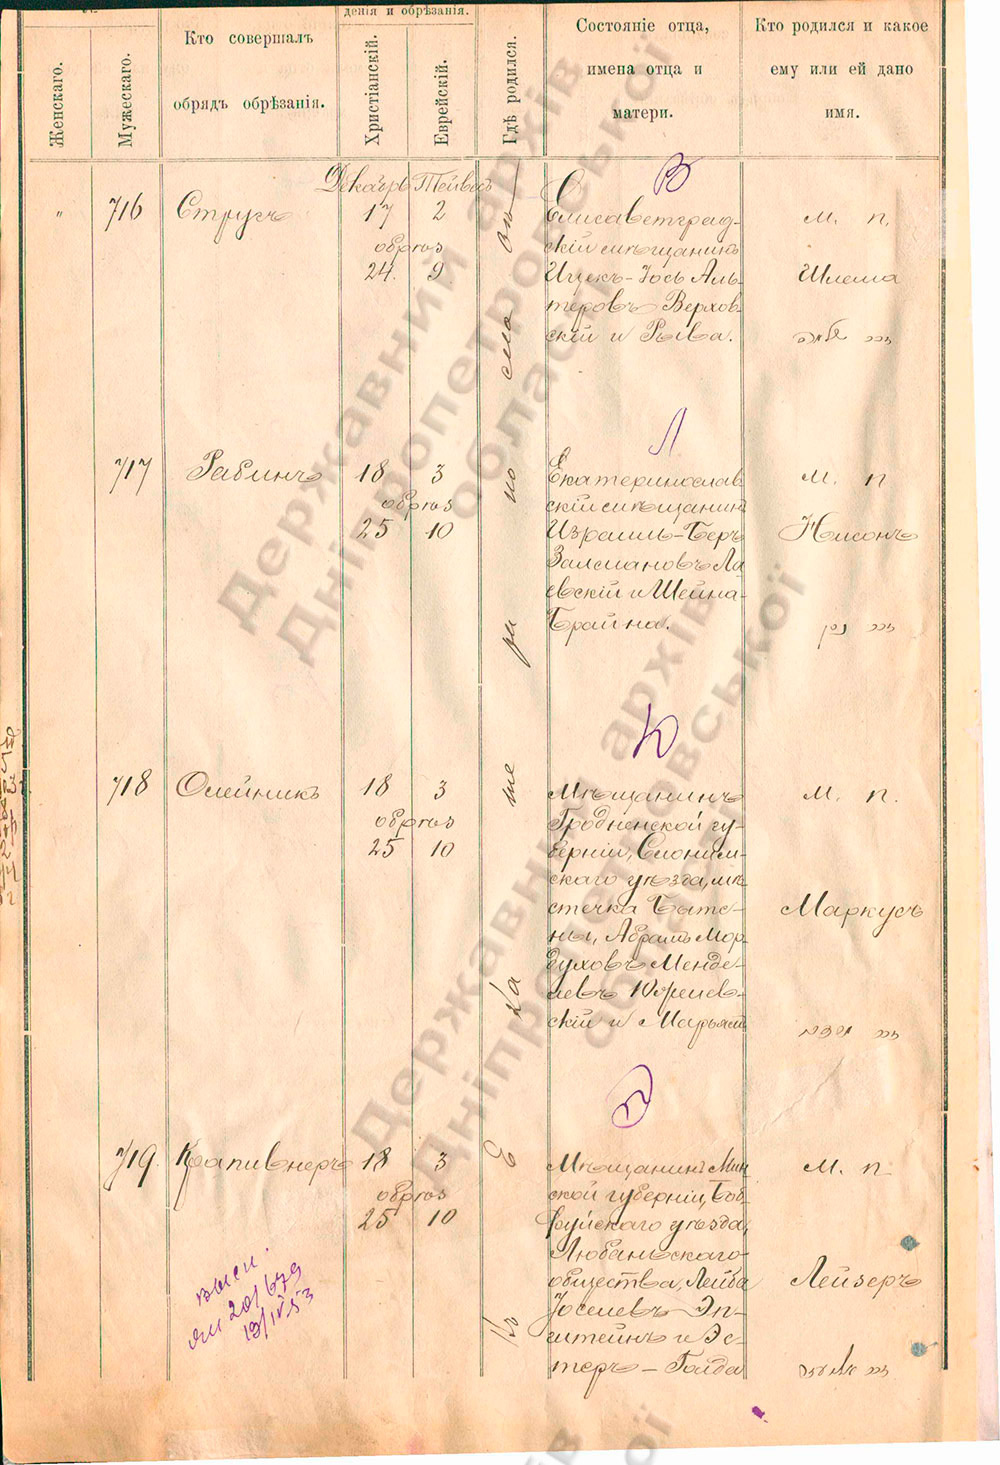 денія и обрѣзанія.
Женскаго.
Мужескаго.
Кто совершалъ
обрядъ обрѣзанія.
Христіанскій.
Еврейскій.
Гдѣ родился.
Состояніе отца,
имена отца и
матери.
Кто родился и какое
ему или ей дано
имя.
Екатеринославѣ
В
Декабрь Тейвесъ
" 716 Стругъ 17 2
обрѣз
24. 9
Елисаветград-
скій мѣщанинъ
Ицекъ-Іось Аль-
теровъ Верхов-
скій и Рыва.
м. п.
Шлема
Л
717 Рабинъ 18 3
обрѣз
25 10
Екатеринослав
скій мѣщанинъ
Израиль-Беръ
Залмановъ Ла
евскій и Шейна-
Брайна.
м. п
Нисонъ
Ю
718 Олейникъ 18 3
обрѣз
25 10
Мѣщанинъ
Гродненской гу-
берніи, Слоним-
скаго уѣзда, мѣ
стечка Быте-
ны, Абрамъ Мор
духовъ Менде-
левъ
скій и Марьяся
м. п.
Маркусъ
719. Крапивнеръ 18 3
обрѣз
25 10
Мѣщанинъ Мин
ской губерніи, Боб
руйскаго уѣзда,
Любаньскаго
общества, Лейба
Іоселевъ Эп-
штейнъ и Эс-
теръ-Гольда
м. п
Лейзеръ
13/IV 53
Державний архів
Дніпропетровської
області
Державний архів
Дніпропетровської
області